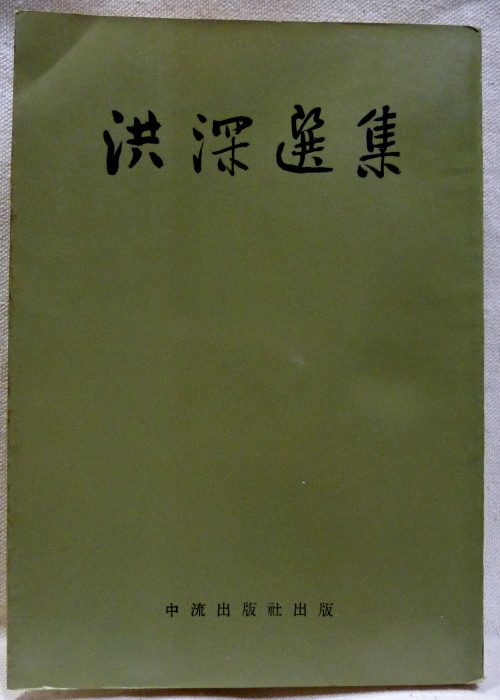 洪深選集
中流出版社出版